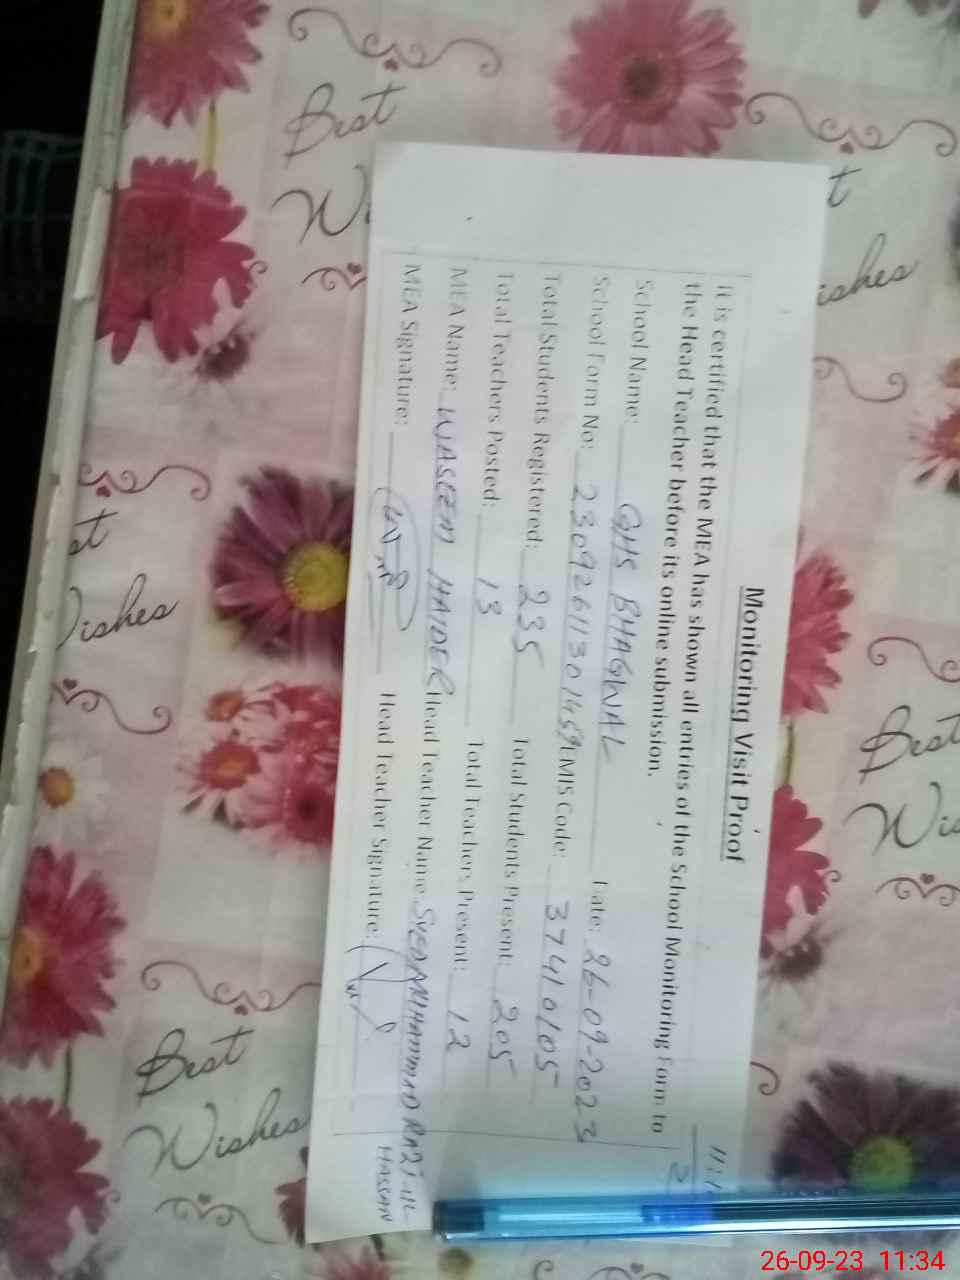 Monitoring Visit Proof
It is certified that the MEA has shown all entries of the School Monitoring Form to
the Head Teacher before its online submission.
School Name: GHS BHAGWAL Date: 26-09-2023
School Form No: 23092611301459 EMIS Code: 37410105
Total Students Registered: 235 Total Students Present: 205
Total Teachers Posted: 13 Total Teachers Present: 12
MEA Name: WASEEM HAIDER Head Teacher Name: SYED MUHAMMAD RAZI-UL-
HASSAN
MEA Signature: Head Teacher Signature:
Best
Wishes
Best
Wishes
26-09-23 11:34